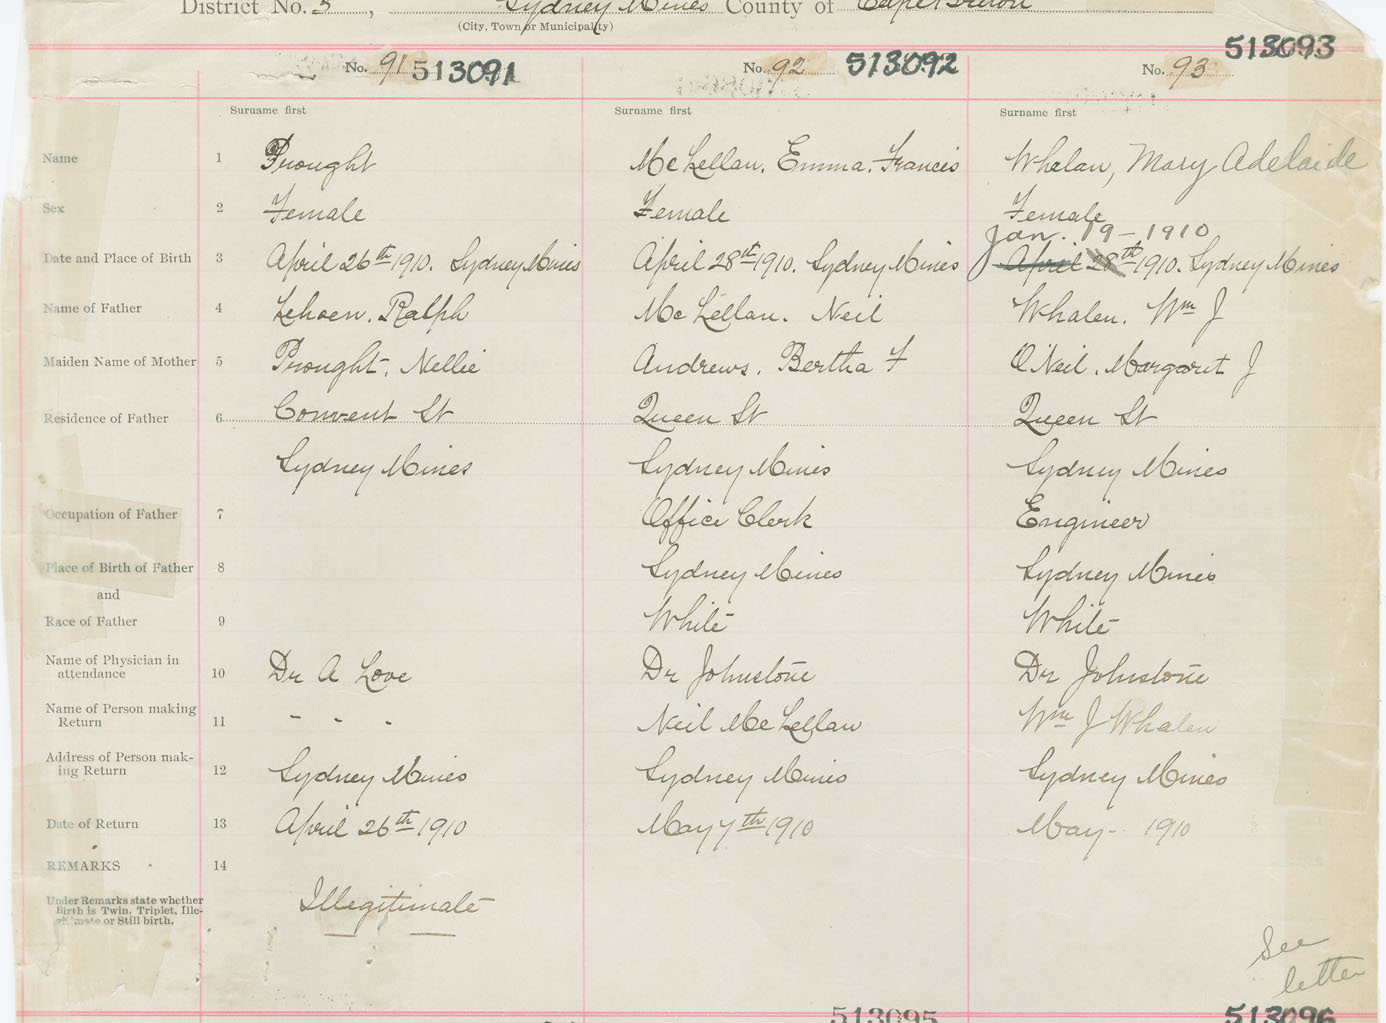 District No. 3, Sydney Mines County of Cape Breton
(City, Town or Municipality)
No. 91 513091 No. 92 513092 No. 93 513093
Surname first Surname first Surname first
Name 1 Prought McLellan, Emma Francis Whalan, Mary Adelaide
Sex 2 Female Female Female
Jan. 19-1910
Date and Place of Birth 3 April 26th 1910. Sydney Mines April 28th 1910. Sydney Mines April 28th 1910. Sydney Mines
Name of Father 4 Ralph McLellan. Neil Whalen. Wm J
Maiden Name of Mother 5 Prought, Nellie Andrews. Bertha F O'Neil. Margaret J
Residence of Father 6 Convent St Queen St Queen St
Sydney Mines Sydney Mines Sydney Mines
Occupation of Father 7 Office Clerk Engineer
Place of Birth of Father 8 Sydney Mines Sydney Mines
and
Race of Father 9 White White
Name of Physician in
attendance 10 Dr A Love Dr Johnstone Dr Johnstone
Name of Person making
Return 11 " " " Neil McLellan Wm J Whalen
Address of Person mak-
ing Return 12 Sydney Mines Sydney Mines Sydney Mines
Date of Return 13 April 26th 1910 May 7th 1910 May - 1910
REMARKS 14
Under Remarks state whether
Birth is Twin, Triplet, Ille-
gitimate or Still birth.
Illegitimate
See
letter
513095 513096